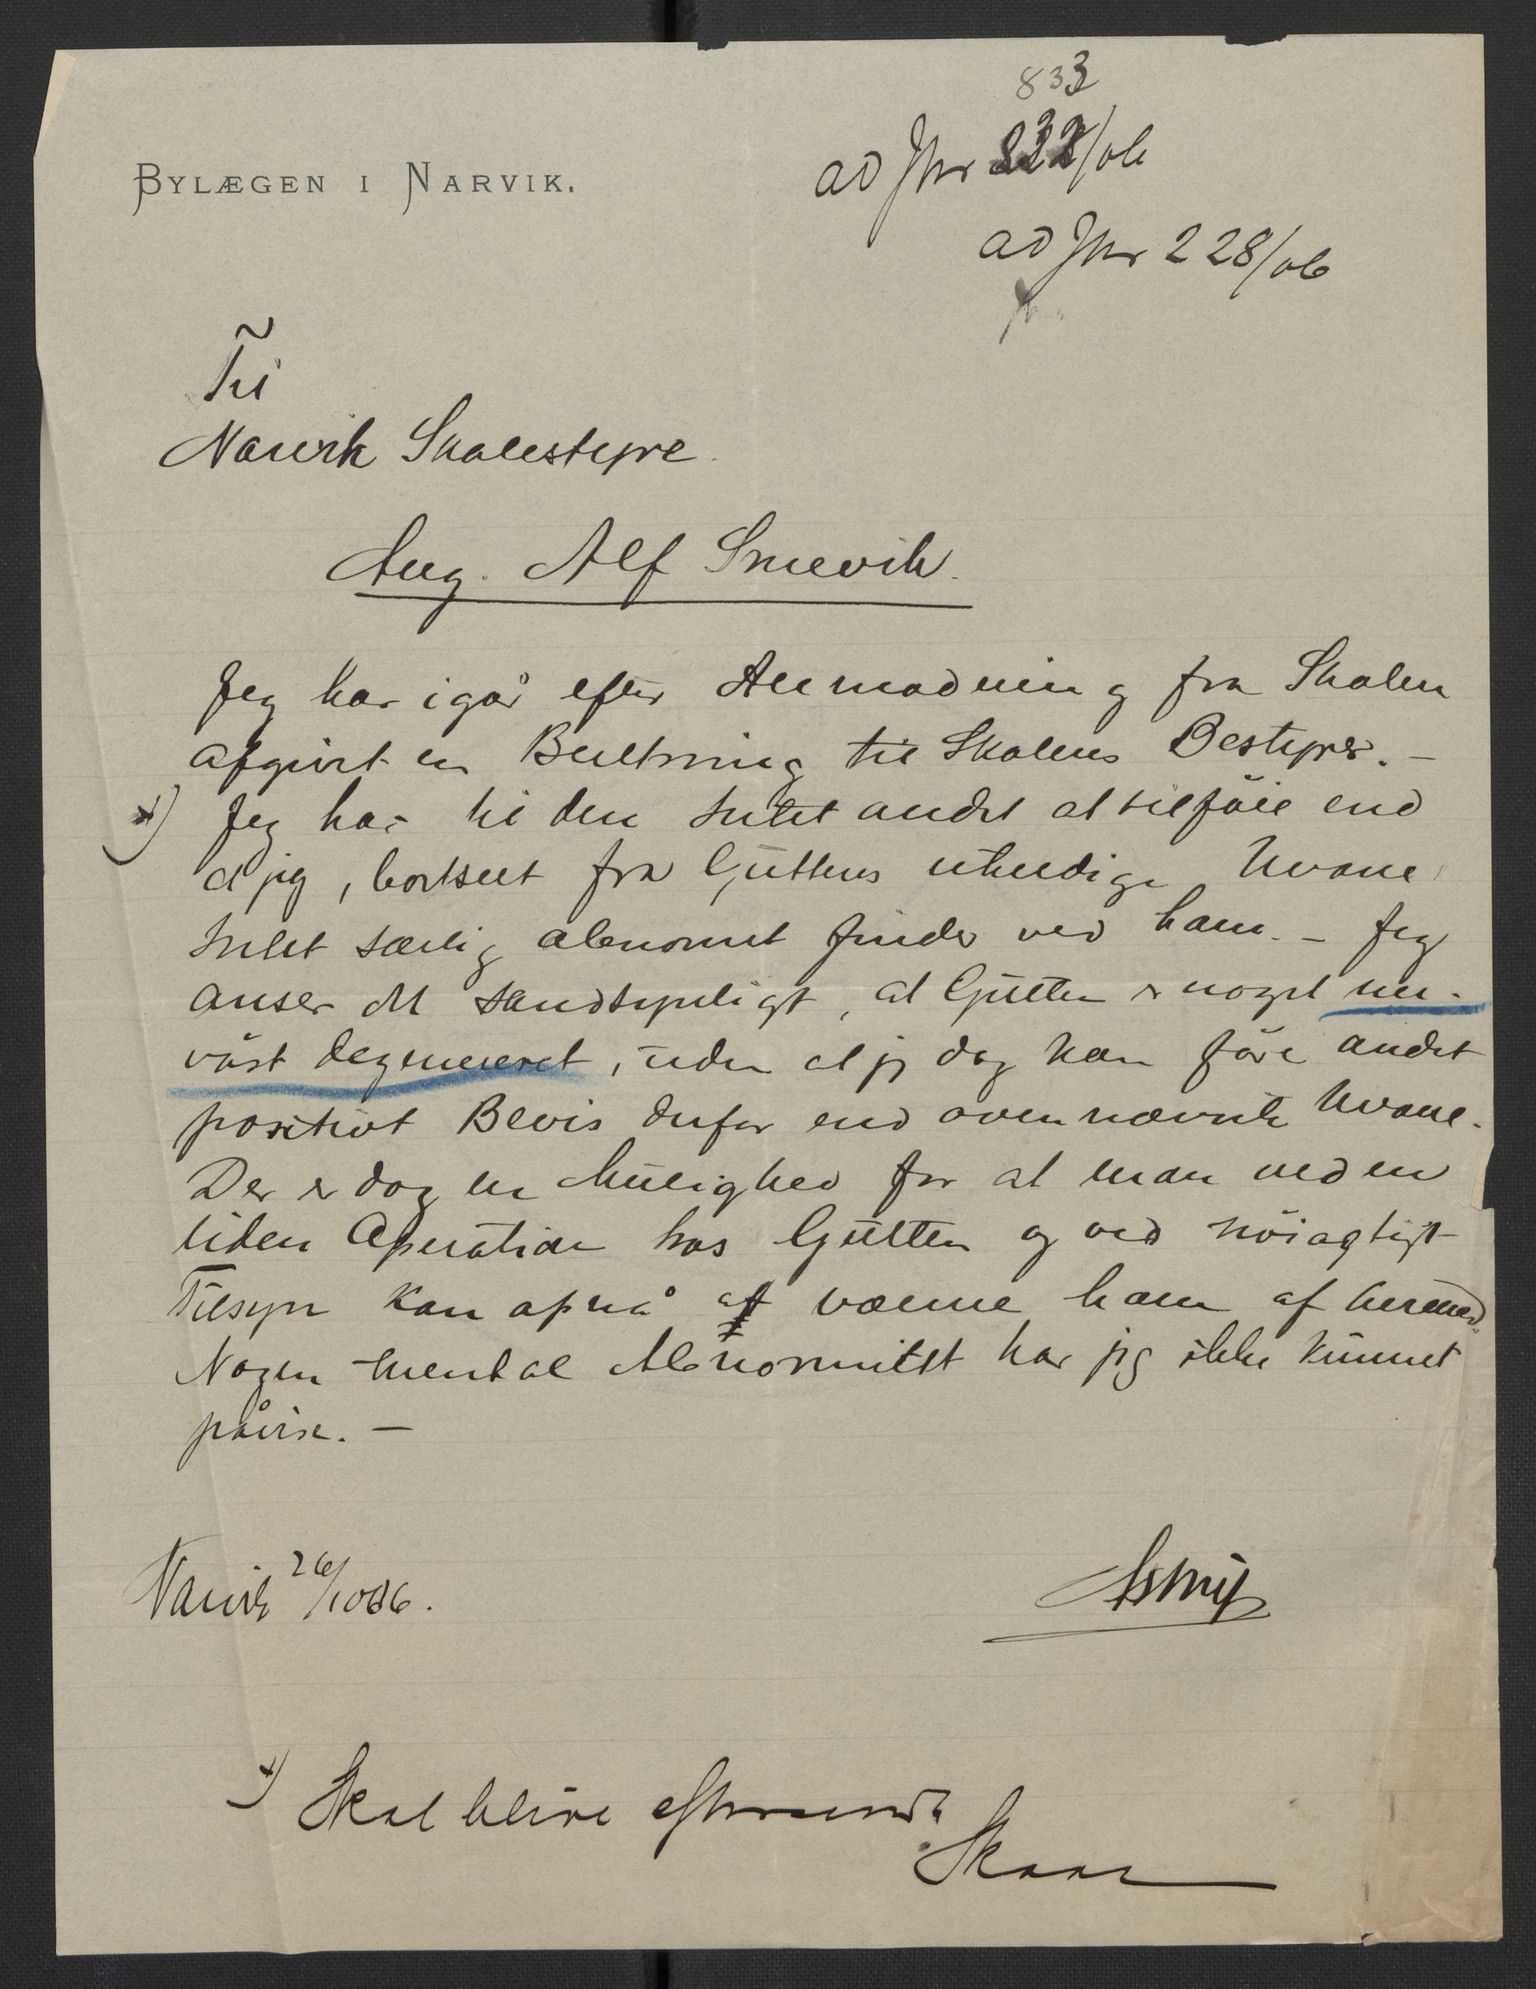 833
ad Jnr 832/06
BYLÆGEN I NARVIK.
ad Jnr 228/06
Til
Narvik Skolestyre.
Aug. Alf Smevik.
Jeg har igår efter Anmodning fra Skolen
afgivet en Beretning til Skolens Bestyrer. –
+) Jeg har til den Intet andet at tilföie end
at jeg, bortseet fra Guttens uheldige Uvane
Intet særlig abnormt finder ved ham. – Jeg
anser det sandsynligt, at Gutten er noget ner-
vöst degenereret, uden at jeg dog kan före andet
positivt Bevis derfor end ovennævnte Uvane.
Der er dog en Mulighed for at man ved en
liden Operation hos Gutten og ved nöiagtigt
Tilsyn kan opnå at vænne ham af hermed.
Nogen mental Abnormitet har jeg ikke kunnet
påvise. –
Narvik 26/10 06.
+) Skal blive eftersendt
Skaar